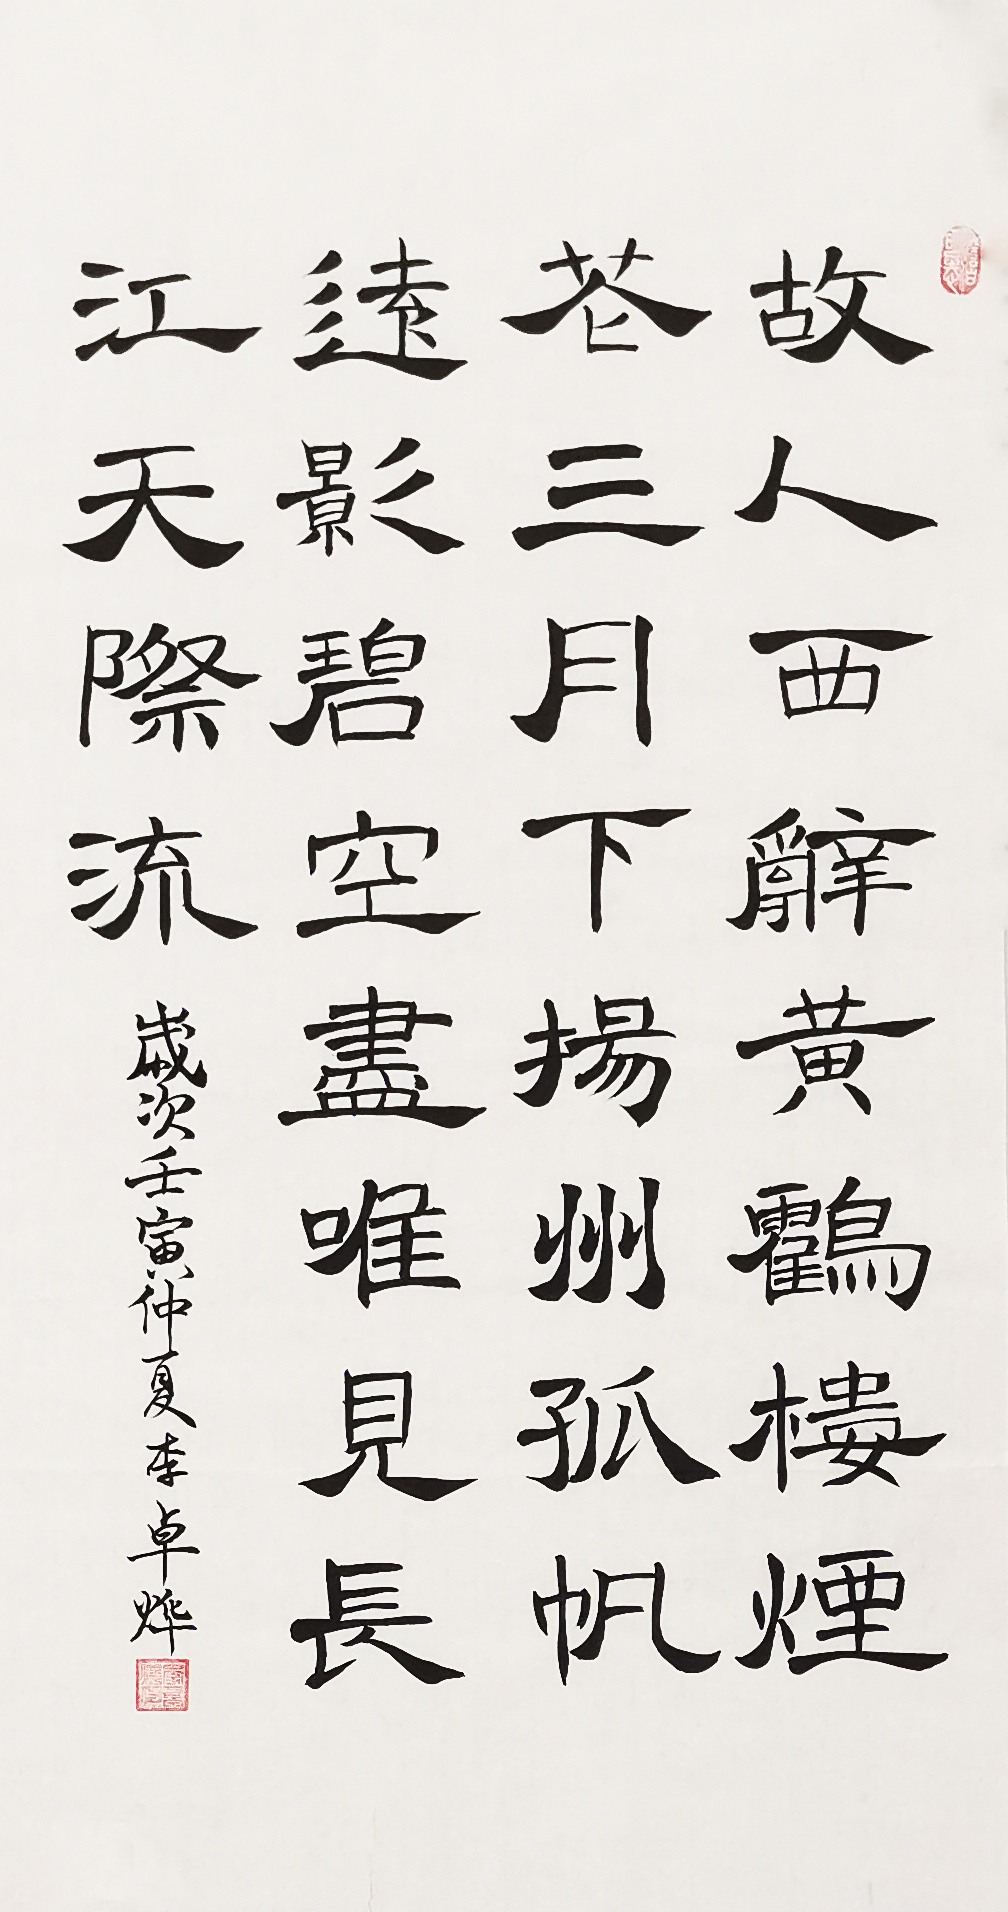 故人西辭黄鶴樓煙
花三月下揚州孤帆
遠影碧空盡唯見長
江天際流
歲次壬寅仲夏李卓燁